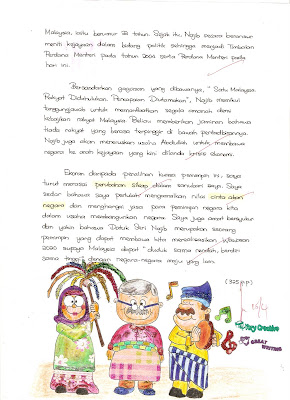 Malaysia, iaitu berumur 23 tahun. Sejak itu, Najib secara beransur
meniti kejayaan dalam bidang politik sehingga menjadi Timbalan
Perdana Menteri pada tahun 2004 serta Perdana Menteri pada
hari ini.
Bersandarkan gagasan yang dibawanya, " Satu Malaysia.
Rakyat Didahulukan. Pencapaian Diutamakan", Najib memikul
tanggungjawab untuk memanfaatkan segala amanah demi
kebajikan rakyat Malaysia. Beliau memberikan jaminan bahawa
tiada rakyat yang berasa terpinggir di bawah pentadbirannya.
Najib juga akan meneruskan usaha Abdullah untuk membawa
negara ke arah kejayaan yang kini dilanda krisis ekonomi.
daripada penelitian pemimpin ini, saya
turut merasai perubahan sikap dalam sanubari saya. Saya
sedar bahawa saya perlulah mengamalkan nilai cinta akan
negara dan menghargai jasa para pemimpin negara kita
dalam usaha membangunkan negara. Saya juga amat bersyukur
dan yakin bahawa Datuk Seri Najib merupakan seorang
pemimpin yang dapat membawa kita merealisasikan Wawasan
2020 supaya Malaysia dapat "duduk sama rendah, berdiri
sama tinggi" dengan negara-negara maju yang lain.
(325 p.p)
Very Creative
GREAT WRITING